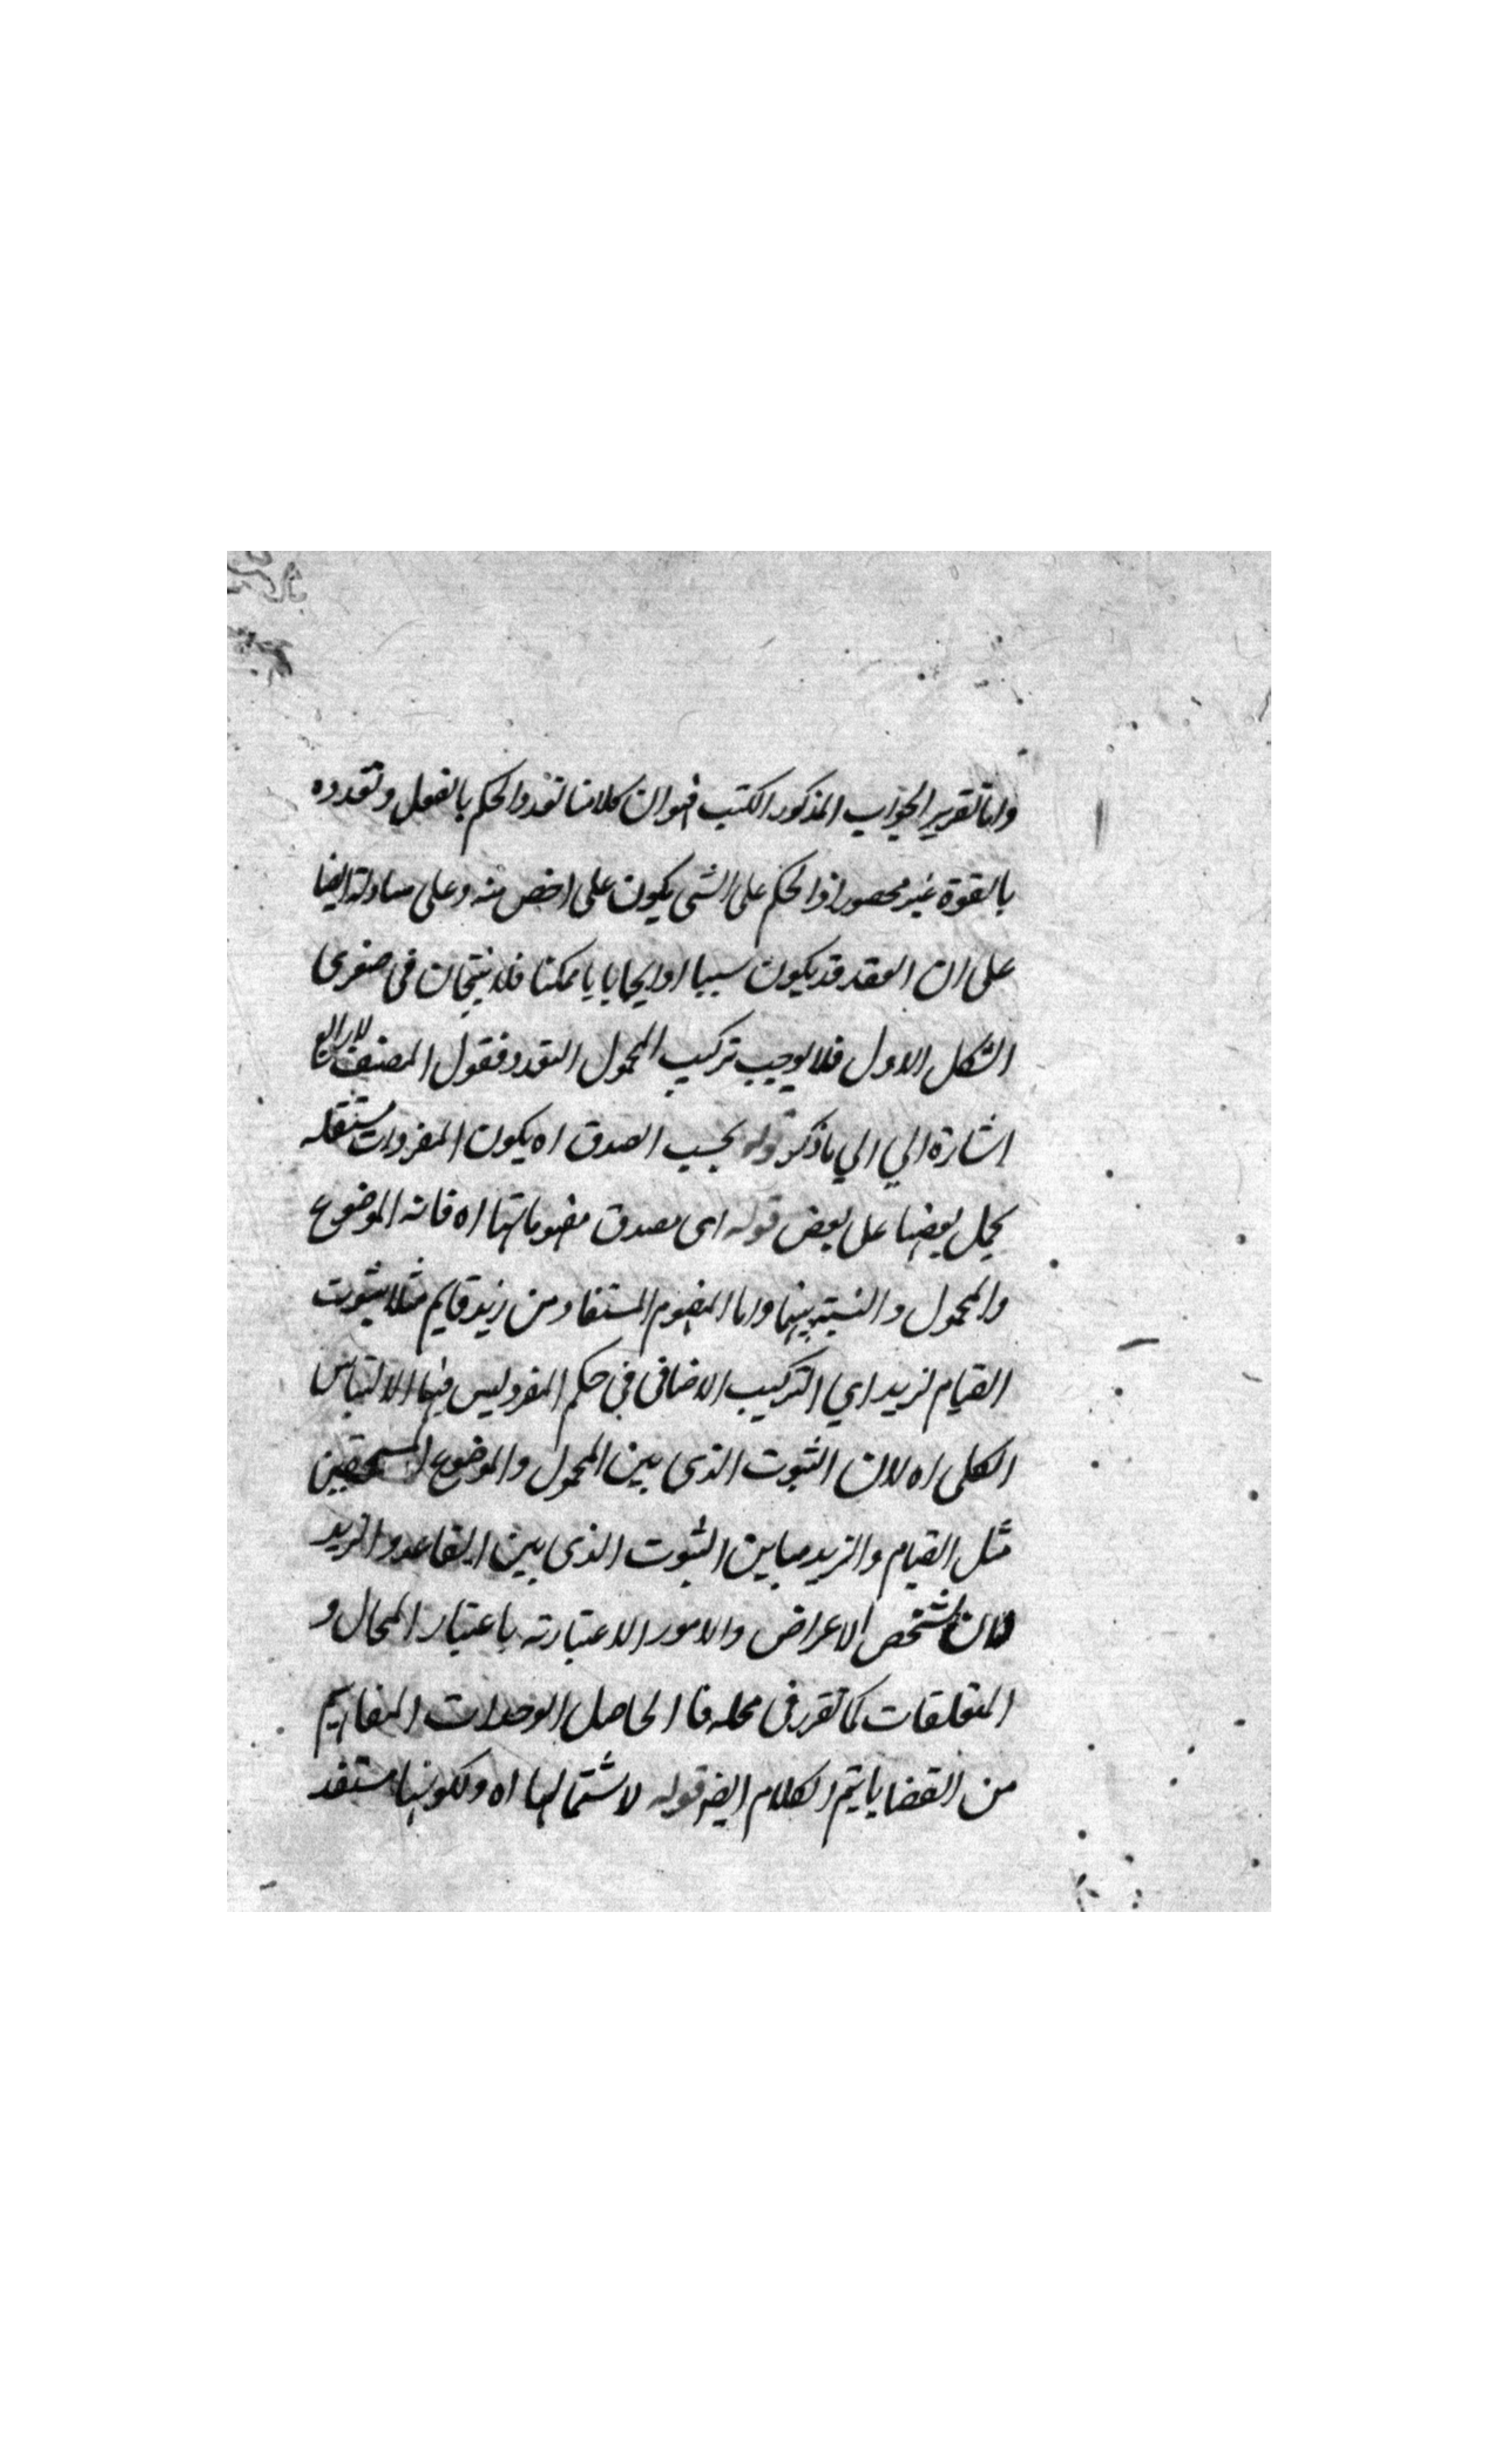 واما تقرير الجواب المذكور الكتب فهوان كلامنا تعدد الحكم بالفعل وتعدده
بالقوة غير محصور اذ الحكم على الشى يكون على اخص منه وعلى مساوله ايضا
على ان العقد قد يكون سببا او ايجابا يا ممكنا فلا ينتجان فى صغرى
الشكل الاول فلا يوجب تركيب المحمول التعدد فقول المصنف
اشارة الي الي ما ذكر قوله بحسب الصدق اه يكون المفردات مستقله
يحمل بعضها على بعض قوله اى يصدق مفهوماتها اه فانه الموضوع
والمحمول والنسبة بينهما واما المفهوم المستفاد من زيد قايم مثلا ثبوت
القيام لزيد اي التركيب الاضافى فى حكم المفرد ليس فيها الالتباس
الكلى اه لان الثبوت الذى بين المحمول والموضوع
مثل القيام والزيد مباين الثبوت الذى بين القاعد والزيد
لان تشخص الاعراض والامور الاعتبارته باعتبار المحال و
المتعلقات كما تقرر فى محله فا الحاصل الوحدات المفاهيم
من القضايا يتم الكلام ايضا قوله لاشتمالها اه ولكونها مستفد